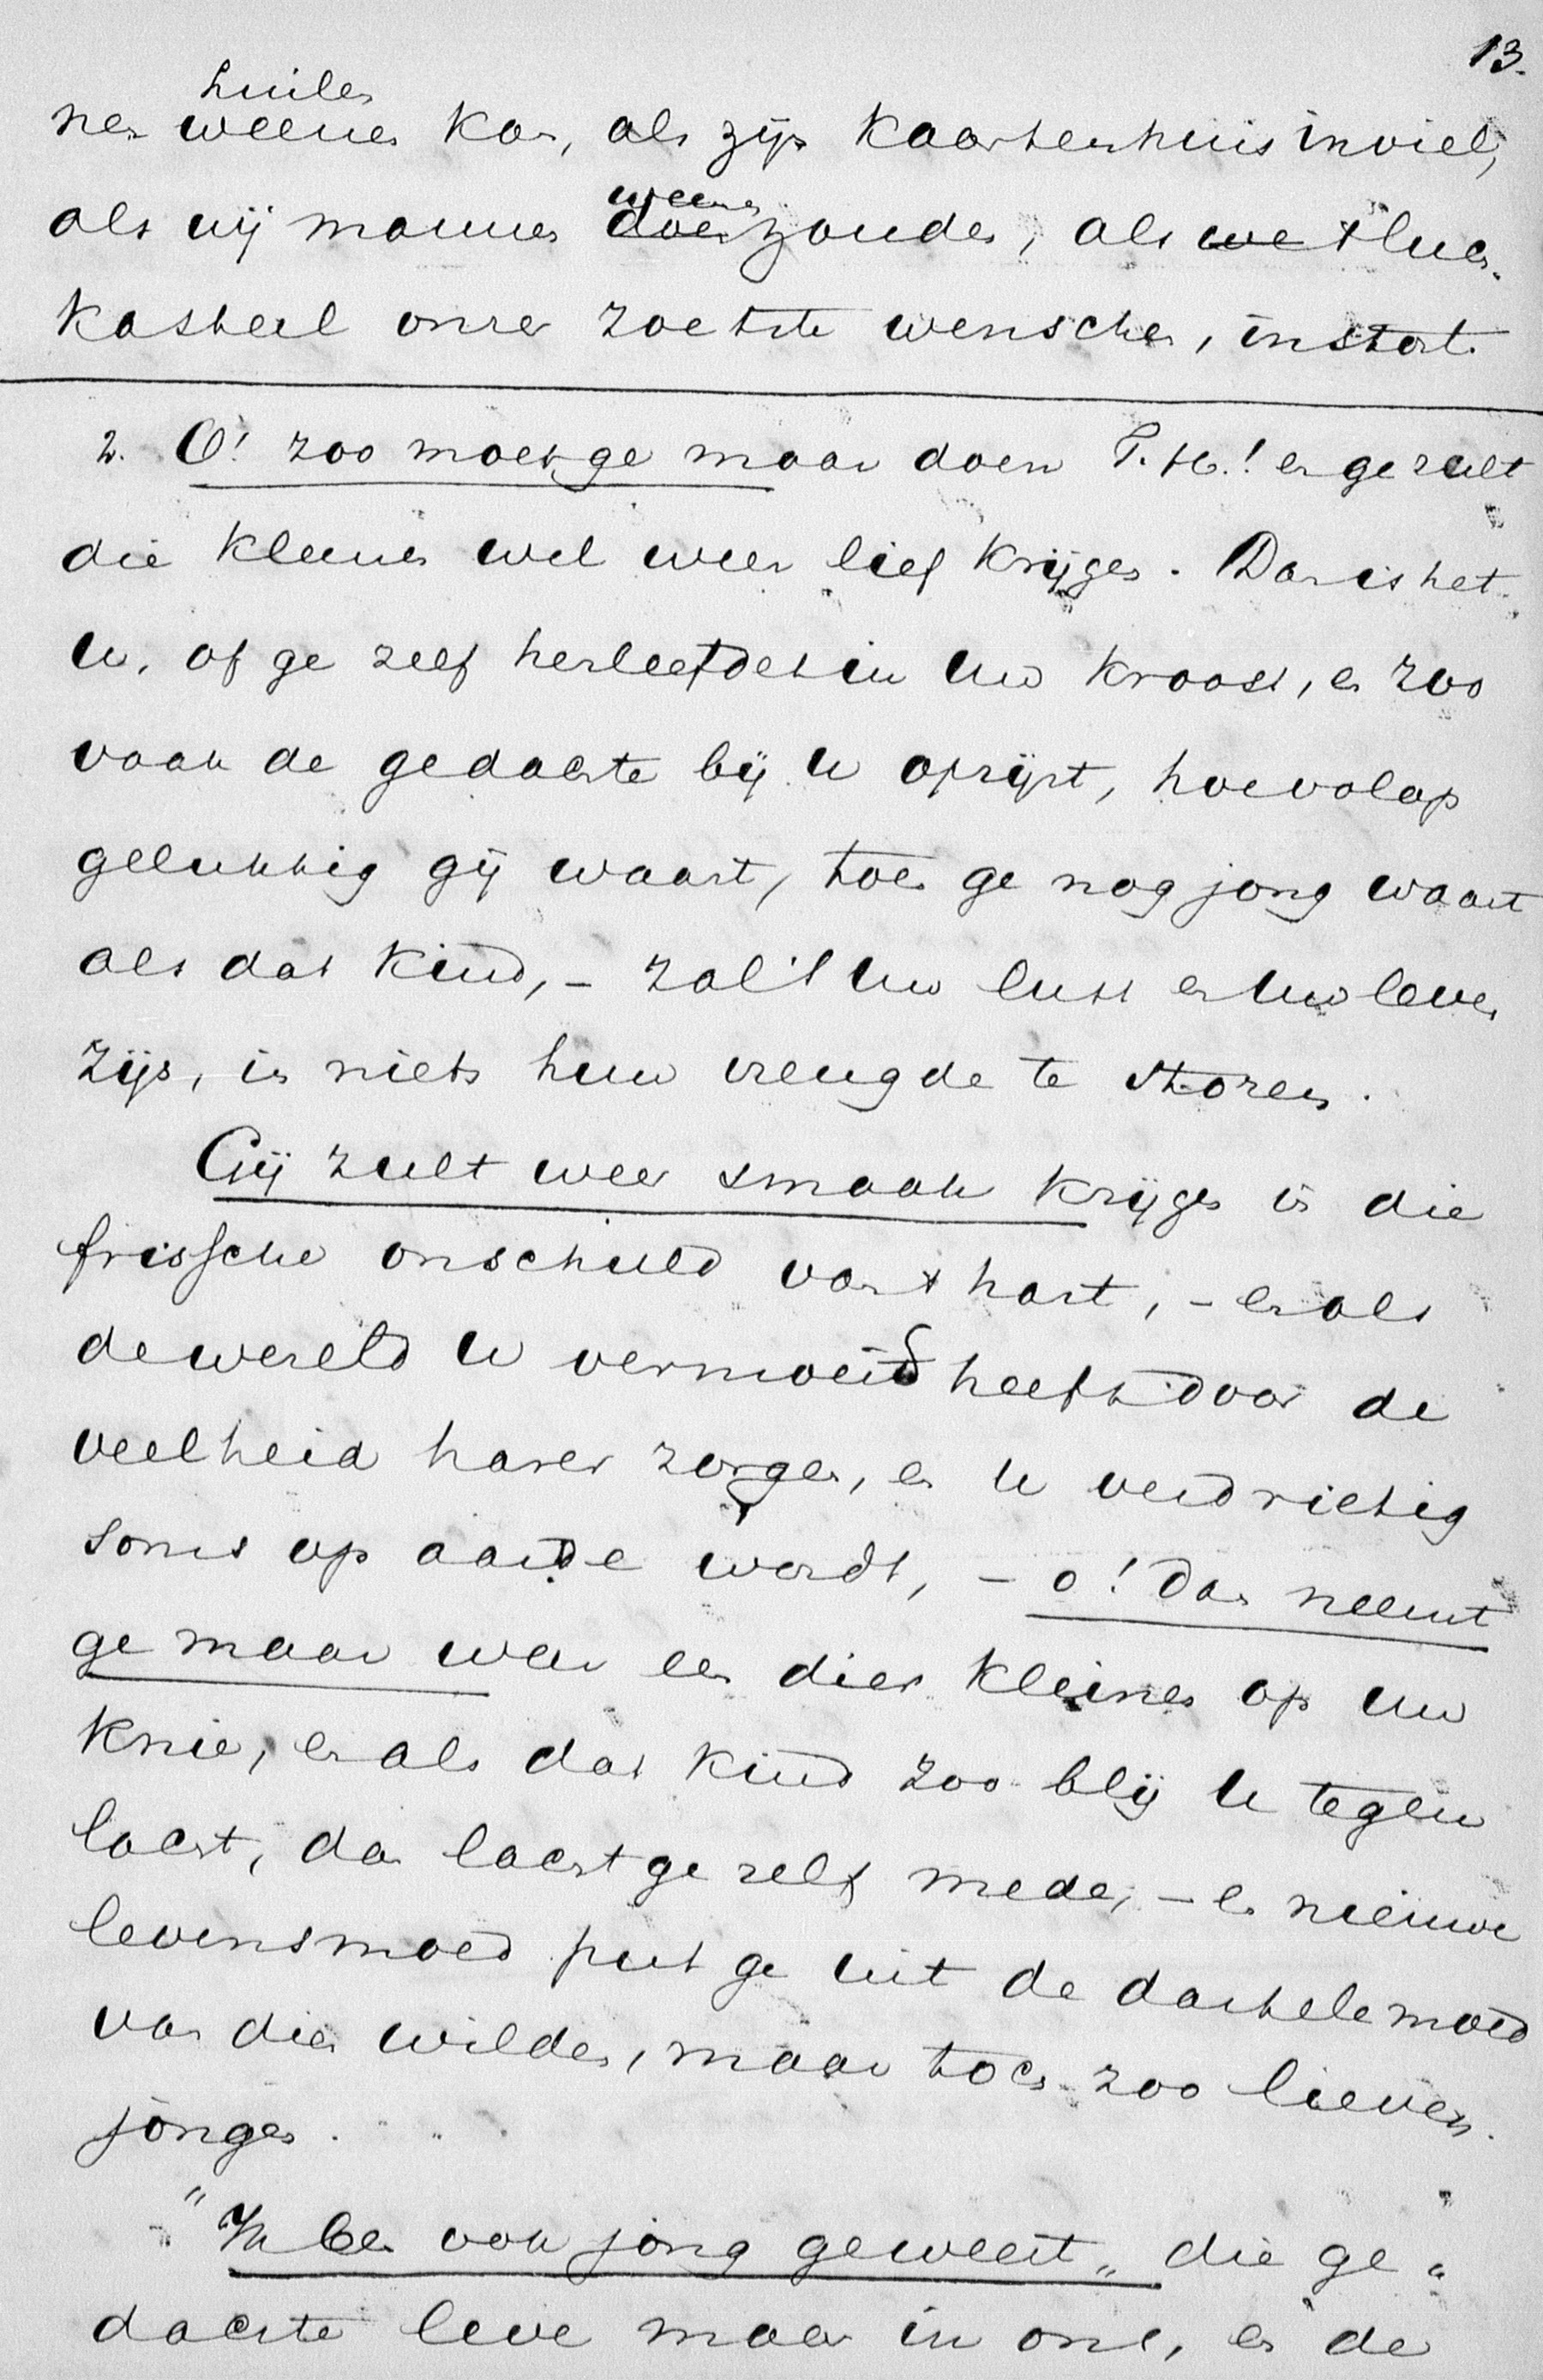 13.
huilen
nen weenen kan, als zijn kaartenhuis inviel,
weenen
als wij mannen doen zouden, als we 't luch-
kasteel onzer zoetste wenschen, instort.
2. O! zoo moet ge maar doen T. H.! en ge zult
die kleinen wel weer lief krijgen. Dan is het
U, of ge zelf herleefdet in Uw kroost, en zoo
vaak de gedachte bij U oprijst, hoe volop
gelukkig gij waart, toen ge nog jong waart
als dat kind, - zal 't Uw lust en Uw leven
zijn, in niets hun vreugde te storen.
Gij zult weer smaak krijgen in die
frissche onschuld van 't hart, - en als
de wereld U vermoeid heeft door de
veelheid harer zorgen, en U verdrietig
soms op aarde wordt, - o! dan neemt
ge maar weer een dier kleinen op Uw
knie, en als dat kind zoo blij U tegen
lacht, dan lacht ge zelf mede, - en nieuwe
levensmoed put ge uit de dartele moed
van dien wilden, maar toch zoo lieven
jongen.
"Ik ben ook jong geweest" die ge-
dachte leve maar in ons, en de